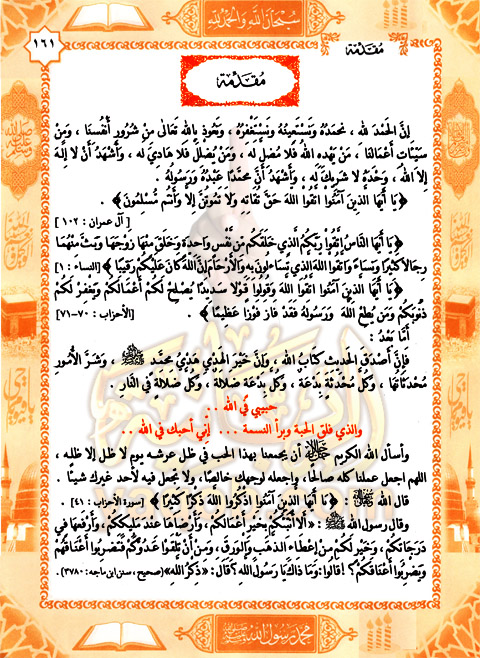 سبحان الله والحمد لله
١٦١
مقدمة
مقدمة
إنَّ الْحَمْدَ لله ، نحمَدُهُ وَنَسْتَعِينُهُ وَنَسْتَغْفِرُهُ ، وَنَعُوذُ بِالله تَعَالَى مِنْ شُرُورِ أَنْفُسِنَا ، وَمِنْ
سَيِّئَاتِ أَعْمَالِنَا ، مَنْ يَهْدِهِ اللهُ فَلَا مُضِلَّ لَهُ ، وَمَنْ يُضْلِلْ فَلَا هَادِيَ لَه ، وَأَشْهَدُ أَنْ لَا إِلَهَ
إِلَّا اللهُ ، وَحْدَهُ لَا شَرِيكَ لَهُ ، وَأَشْهَدُ أَنَّ مُحَمَّدًا عَبْدُهُ وَرَسُولُهُ .
﴿يَا أَيُّهَا الَّذِينَ آمَنُوا اتَّقُوا اللهَ حَقَّ تُقَاتِهِ وَلَا تَمُوتُنَّ إِلَّا وَأَنتُم مُّسْلِمُونَ﴾ .
[آل عمران : ١٠٢]
﴿يَا أَيُّهَا النَّاسُ اتَّقُوا رَبَّكُمُ الَّذِي خَلَقَكُم مِّن نَّفْسٍ وَاحِدَةٍ وَخَلَقَ مِنْهَا زَوْجَهَا وَبَثَّ مِنْهُمَا
رِجَالاً كَثِيرًا وَنِسَاءً وَاتَّقُوا اللهَ الَّذِي تَسَاءَلُونَ بِهِ وَالأَرْحَامَ إِنَّ اللهَ كَانَ عَلَيْكُمْ رَقِيبًا﴾ [النساء : ١]
﴿يَا أَيُّهَا الَّذِينَ آمَنُوا اتَّقُوا اللهَ وَقُولُوا قَوْلًا سَدِيدًا يُصْلِحْ لَكُمْ أَعْمَالَكُمْ وَيَغْفِرْ لَكُمْ
ذُنُوبَكُمْ وَمَن يُطِعْ اللهَ وَرَسُولَهُ فَقَدْ فَازَ فَوْزًا عَظِيمًا﴾ . [الأحزاب : ٧٠-٧١]
أَمَّا بَعْدُ :
فَإِنَّ أَصْدَقَ الْحَدِيثِ كِتَابُ الله ، وَإِنَّ خَيْرَ الْهَدْيِ هَدْيُ مُحَمَّدٍ ﷺ ، وَشَرَّ الْأُمُورِ
مُحْدَثَاتُهَا ، وَكُلَّ مُحْدَثَةٍ بِدْعَة ، وَكُلَّ بِدْعَةٍ ضَلَالَة ، وَكُلَّ ضَلَالَةٍ فِي النَّارِ .
حبيبي في الله ..
والذي فلق الحبة وبرأ النسمة ... إني أحبك في الله ..
وأسأل الله الكريم أن يجمعنا بهذا الحب في ظل عرشه يوم لا ظل إلا ظله ،
اللهم اجعل عملنا كله صالحًا، واجعله لوجهك خالصًا، ولا تجعل فيه لأحد غيرك شيئًا .
قال الله : ﴿يَا أَيُّهَا الَّذِينَ آمَنُوا اذْكُرُوا اللهَ ذِكْرًا كَثِيرًا﴾ [سورة الأحزاب : ٤١] .
وقال رسول الله ﷺ : «أَلَا أُنَبِّئُكُمْ بِخَيْرِ أَعْمَالِكُمْ ، وَأَرْضَاهَا عِنْدَ مَلِيكِكُمْ ، وَأَرْفَعِهَا فِي
دَرَجَاتِكُمْ ، وَخَيْرٍ لَكُمْ مِنْ إِعْطَاءِ الذَّهَبِ وَالْوَرِقِ ، وَمِنْ أَنْ تَلْقَوْا عَدُوَّكُمْ فَتَضْرِبُوا أَعْنَاقَهُمْ
وَيَضْرِبُوا أَعْنَاقَكُمْ؟! قالوا: وَمَا ذَاكَ يَا رَسُولَ الله؟ قالَ: «ذِكْرُ الله» (صحيح ، سنن ابن ماجه: ٣٧٨٠).
محمد رسول الله ﷺ